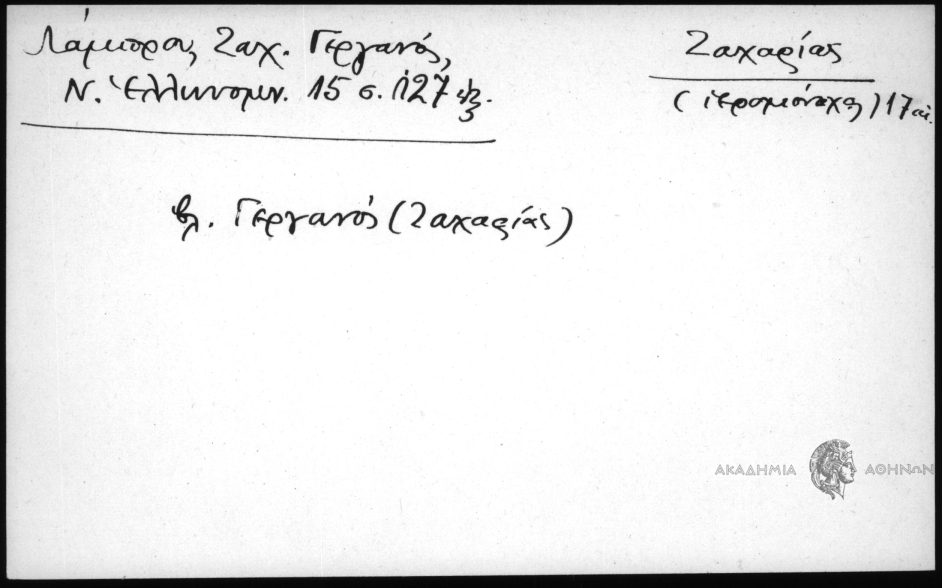 Λάμπρου, Ζαχ. Γεργανός,
Ν. Ἑλληνομν. 15 σ. 127 ἑξ.
Ζαχαρίας
(ἱερομόναχος) 17 αἰ.
βλ. Γεργανός (Ζαχαρίας)
ΑΚΑΔΗΜΙΑ ΑΘΗΝΩΝ